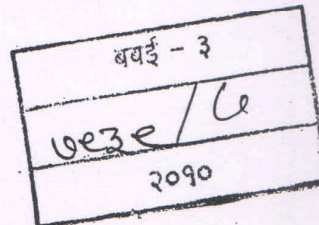 बबई - ३
७९३९/
२०१०